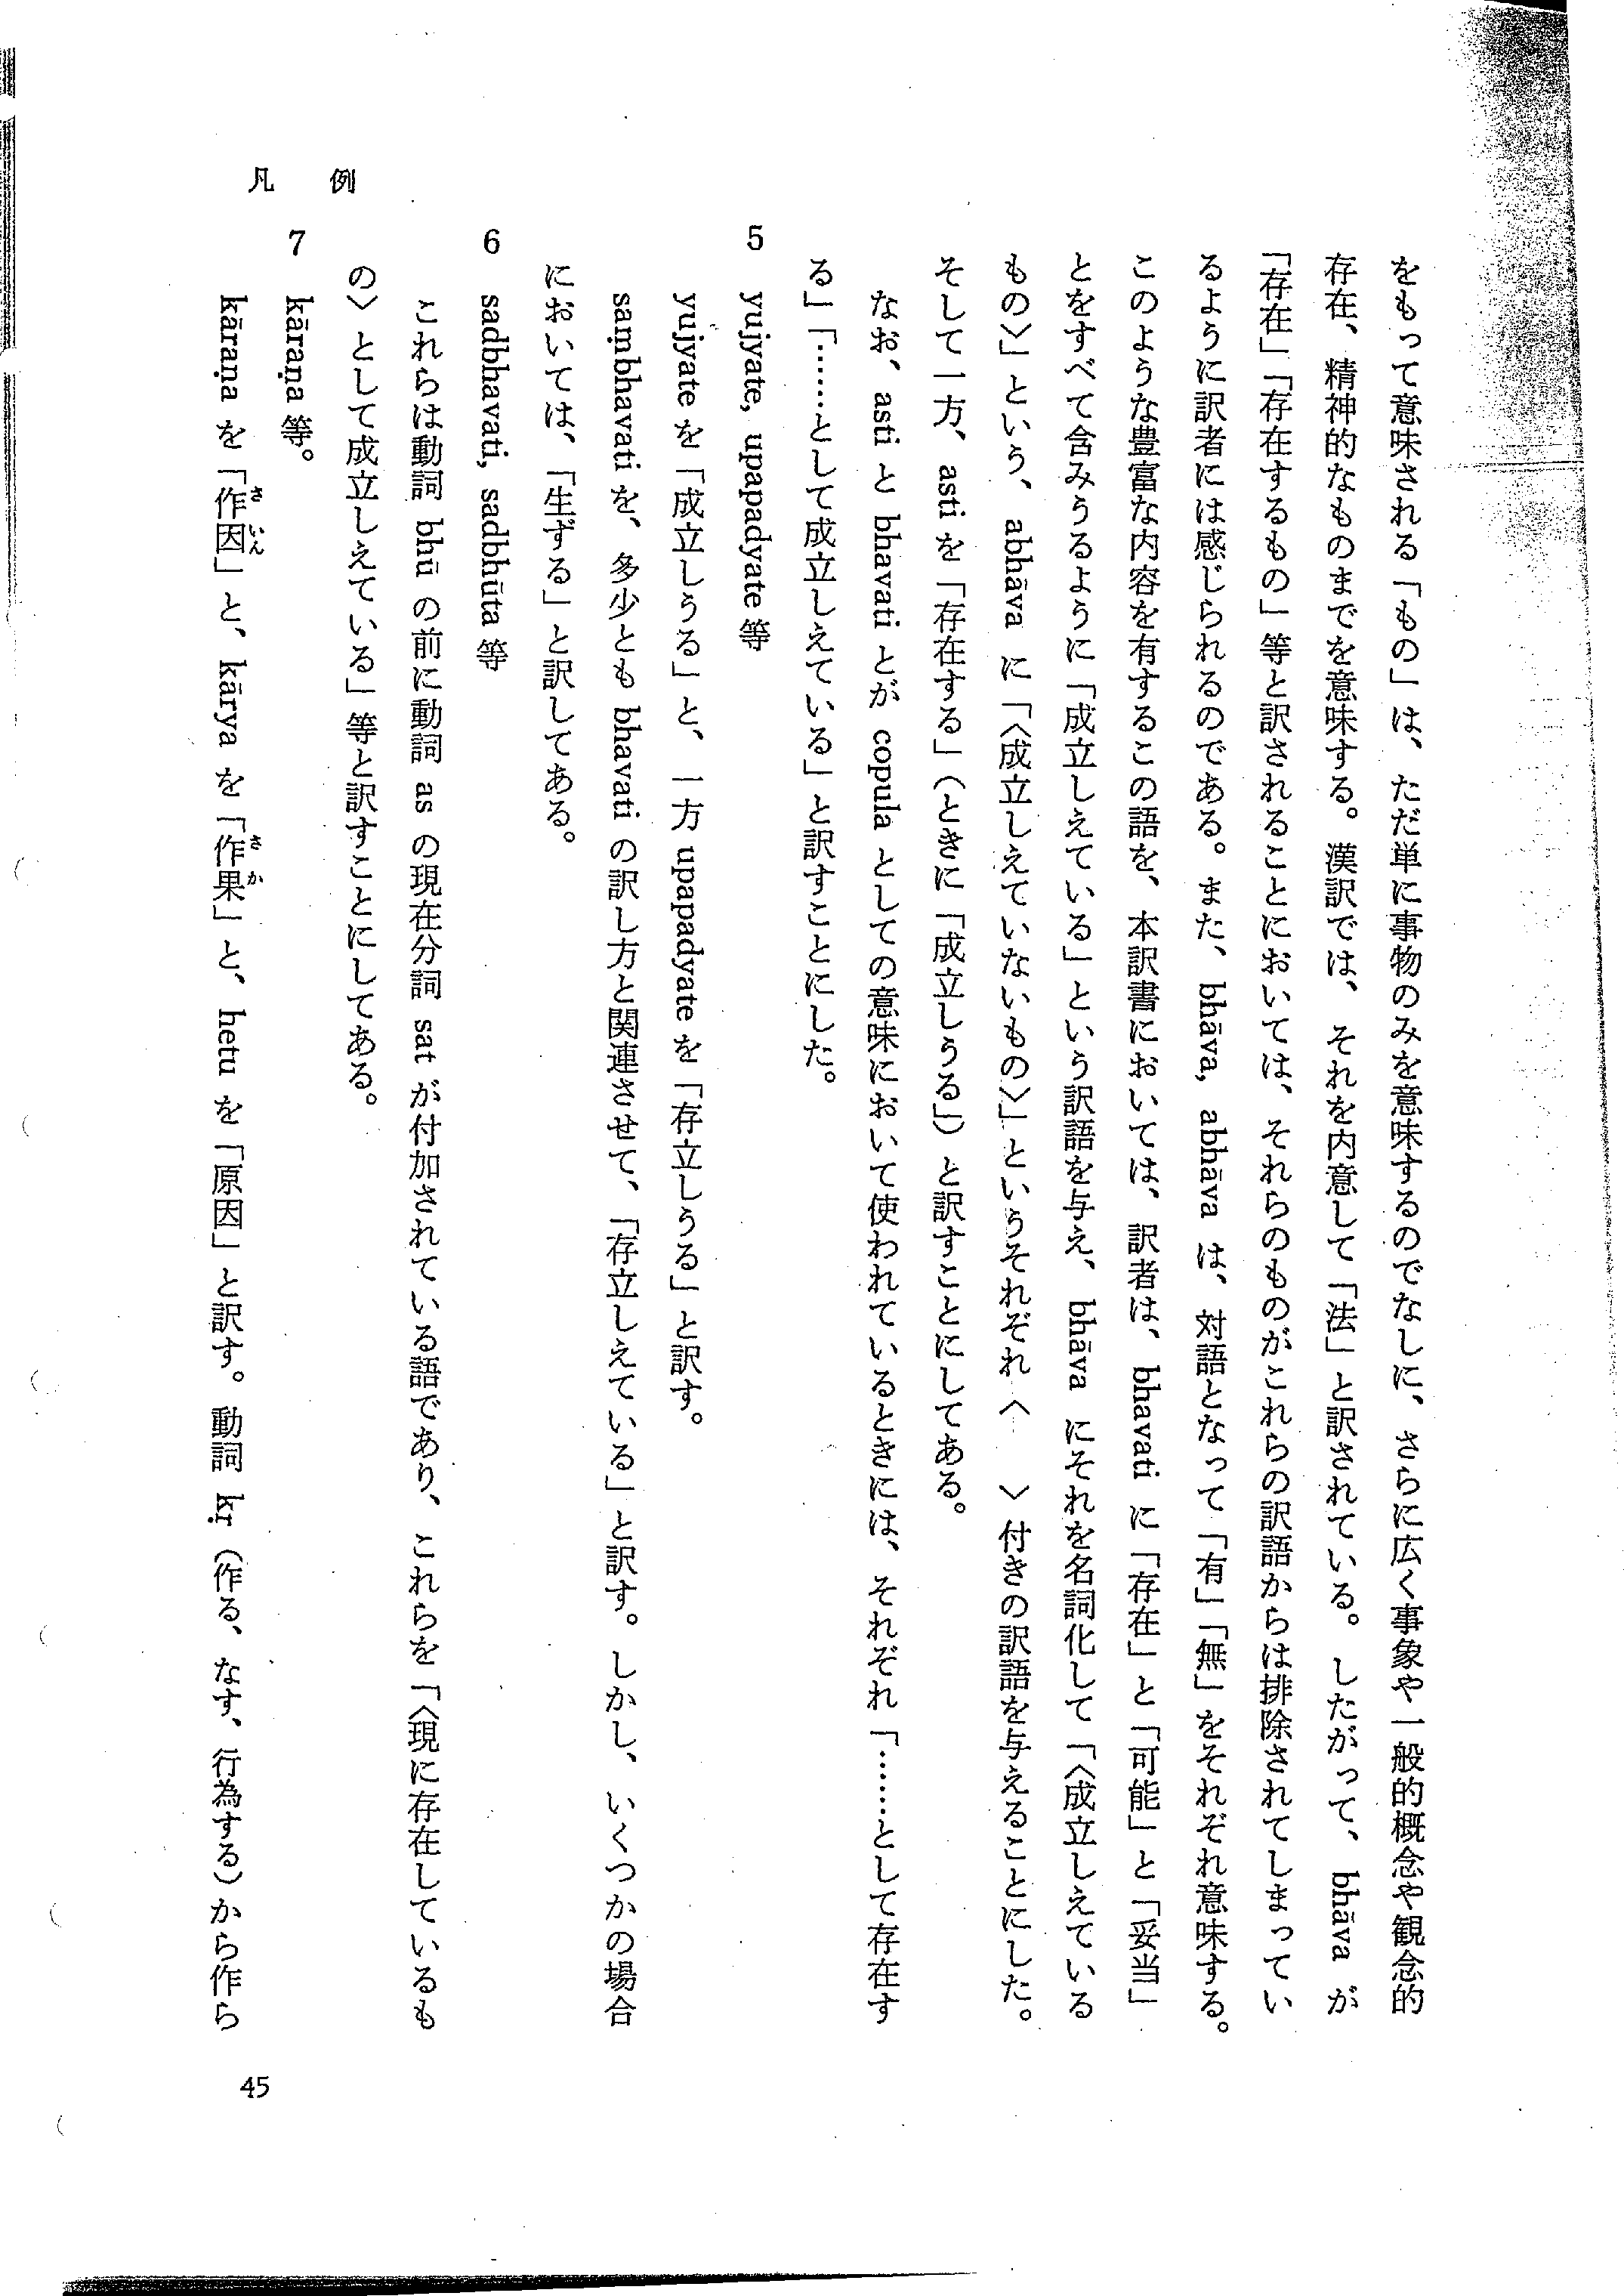 をもって意味される「もの」は、ただ単に事物のみを意味するのでなしに、さらに広く事象や一般的概念や観念的
存在、精神的なものまでを意味する。漢訳では、それを内意して「法」と訳されている。したがって、bhāva が
「存在」「存在するもの」等と訳されることにおいては、それらのものがこれらの訳語からは排除されてしまってい
るように訳者には感じられるのである。また、bhāva, abhāva は、対語となって「有」「無」をそれぞれ意味する。
このような豊富な内容を有するこの語を、本訳書においては、訳者は、bhavati に「存在」と「可能」と「妥当」
とをすべて含みうるように「成立しえている」という訳語を与え、bhāva にそれを名詞化して「〈成立しえている
もの〉」という、abhāva に「〈成立しえていないもの〉」というそれぞれ〈 〉付きの訳語を与えることにした。
そして一方、asti を「存在する」（ときに「成立しうる」）と訳すことにしてある。
なお、asti と bhavati とが copula としての意味において使われているときには、それぞれ「……として存在す
る」「……として成立しえている」と訳すことにした。
5 yujyate, upapadyate 等
yujyate を「成立しうる」と、一方 upapadyate を「存立しうる」と訳す。
saṃbhavati を、多少とも bhavati の訳し方と関連させて、「存立しえている」と訳す。しかし、いくつかの場合
においては、「生ずる」と訳してある。
6 sadbhavati, sadbhūta 等
これらは動詞 bhū の前に動詞 as の現在分詞 sat が付加されている語であり、これらを「〈現に存在しているも
の〉として成立しえている」等と訳すことにしてある。
7 kāraṇa 等。
kāraṇa を「作因（さいん）」と、kārya を「作果（さか）」と、hetu を「原因」と訳す。動詞 kṛ（作る、なす、行為する）から作ら
凡 例
45